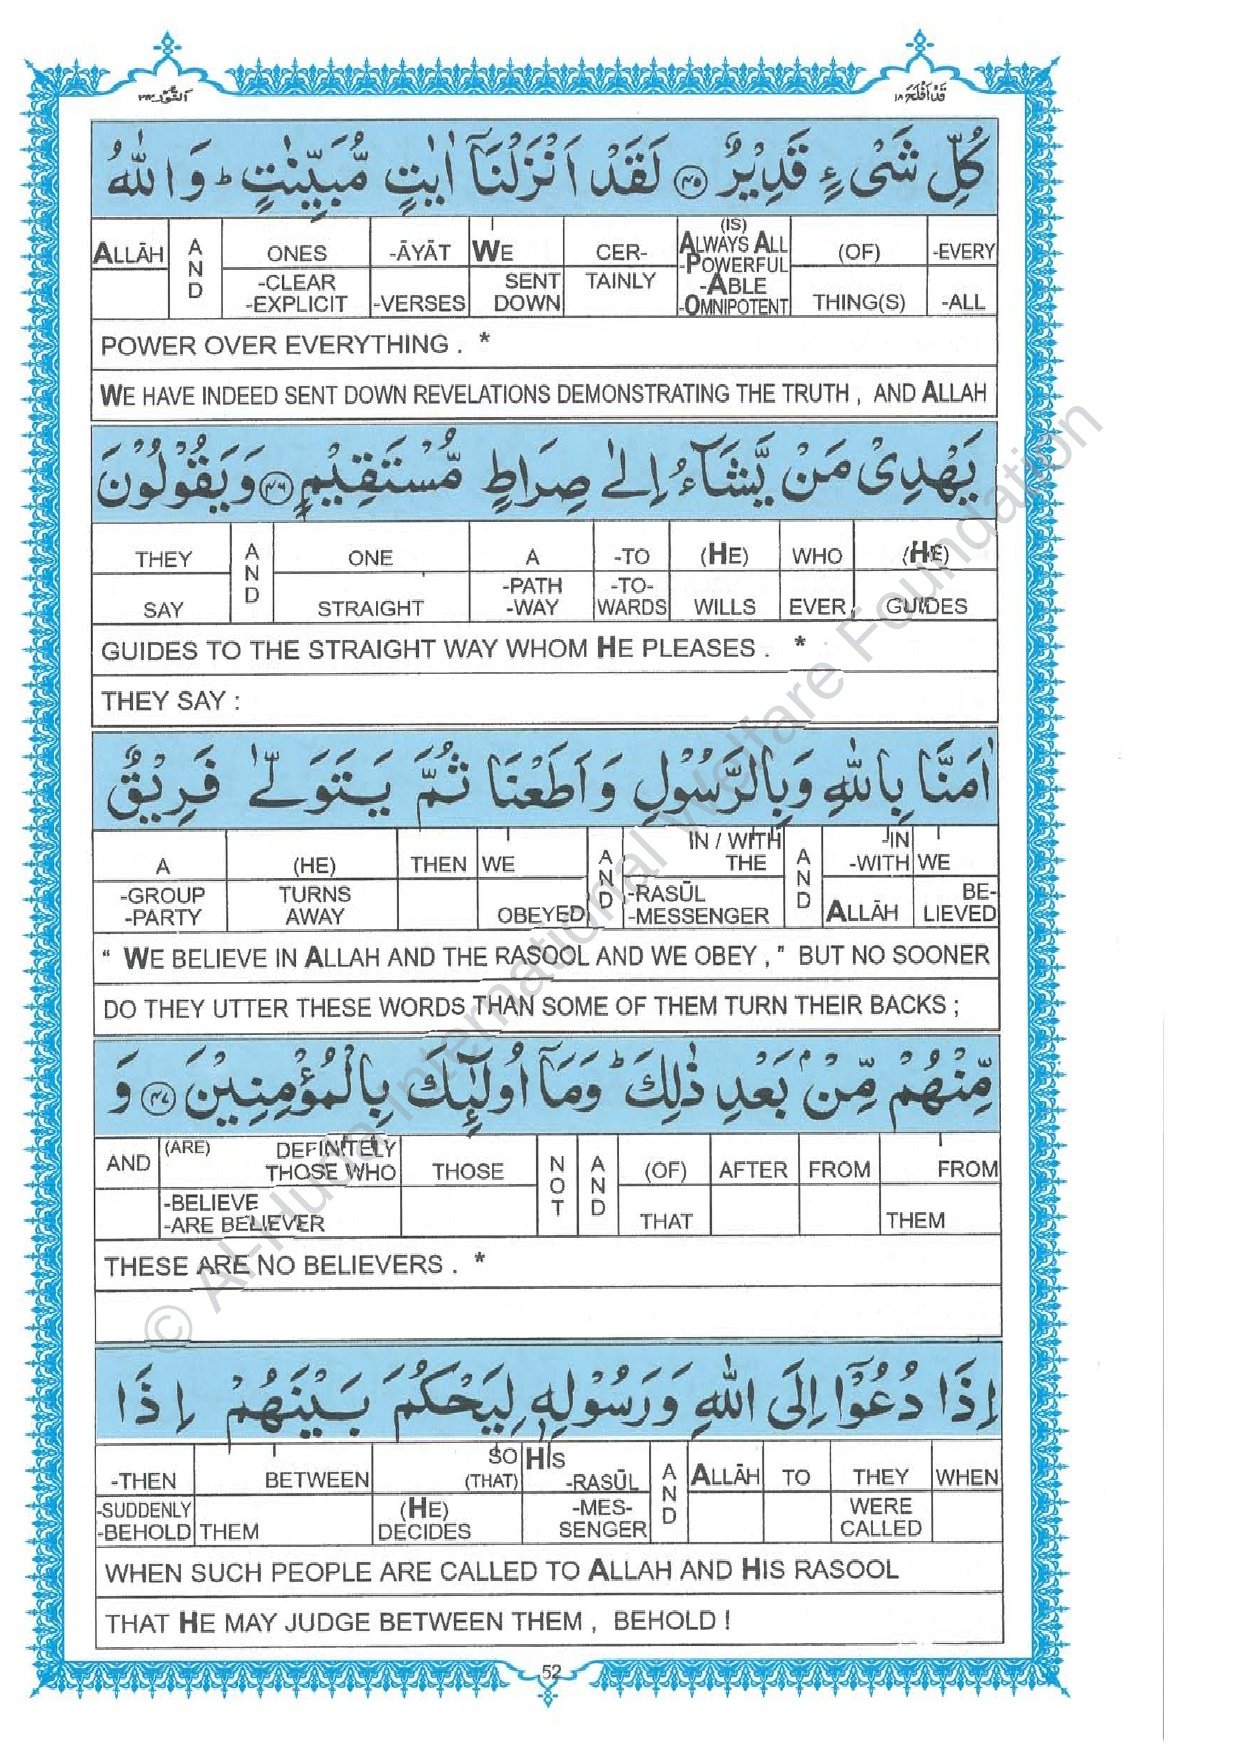 قَدْ اَفْلَحَ ١٨
اَلنُّوْر ٢٤
كُلِّ شَىْءٍ قَدِيْرٌ ﴿٤٥﴾ لَقَدْ اَنْزَلْنَاۤ اٰيٰتٍ مُّبَيِّنٰتٍ ؕ وَاللّٰهُ
-EVERY -ALL | (OF) THING(S) | (IS) ALWAYS ALL -POWERFUL -ABLE -OMNIPOTENT | CER- TAINLY | WE SENT DOWN | -ĀYĀT -VERSES | ONES -CLEAR -EXPLICIT | AND | ALLĀH
POWER OVER EVERYTHING . *
WE HAVE INDEED SENT DOWN REVELATIONS DEMONSTRATING THE TRUTH , AND ALLAH
يَهْدِىْ مَنْ يَّشَآءُ اِلٰى صِرَاطٍ مُّسْتَقِيْمٍ ﴿٤٦﴾ وَيَقُوْلُوْنَ
(HE) GUIDES | WHO EVER | (HE) WILLS | -TO -TO- WARDS | A -PATH -WAY | ONE STRAIGHT | AND | THEY SAY
GUIDES TO THE STRAIGHT WAY WHOM HE PLEASES . *
THEY SAY :
اٰمَنَّا بِاللّٰهِ وَبِالرَّسُوْلِ وَاَطَعْنَا ثُمَّ يَتَوَلّٰى فَرِيْقٌ
WE BE- LIEVED | -IN -WITH ALLĀH | AND | IN / WITH THE -RASŪL -MESSENGER | AND | WE OBEYED | THEN | (HE) TURNS AWAY | A -GROUP -PARTY
“ WE BELIEVE IN ALLAH AND THE RASOOL AND WE OBEY , ” BUT NO SOONER
DO THEY UTTER THESE WORDS THAN SOME OF THEM TURN THEIR BACKS ;
مِّنْهُمْ مِّنْۢ بَعْدِ ذٰلِكَ ؕ وَمَاۤ اُولٰٓئِكَ بِالْمُؤْمِنِيْنَ ﴿٤٧﴾ وَ
FROM THEM | FROM | AFTER | (OF) THAT | AND | NOT | THOSE | (ARE) DEFINITELY THOSE WHO -BELIEVE -ARE BELIEVER | AND
THESE ARE NO BELIEVERS . *
اِذَا دُعُوْۤا اِلَى اللّٰهِ وَرَسُوْلِهٖ لِيَحْكُمَ بَيْنَهُمْ اِذَا
WHEN | THEY WERE CALLED | TO | ALLĀH | AND | HIS -RASŪL -MES- SENGER | SO (THAT) (HE) DECIDES | BETWEEN THEM | -THEN -SUDDENLY -BEHOLD
WHEN SUCH PEOPLE ARE CALLED TO ALLAH AND HIS RASOOL
THAT HE MAY JUDGE BETWEEN THEM , BEHOLD !
52
© Al-Huda International Welfare Foundation